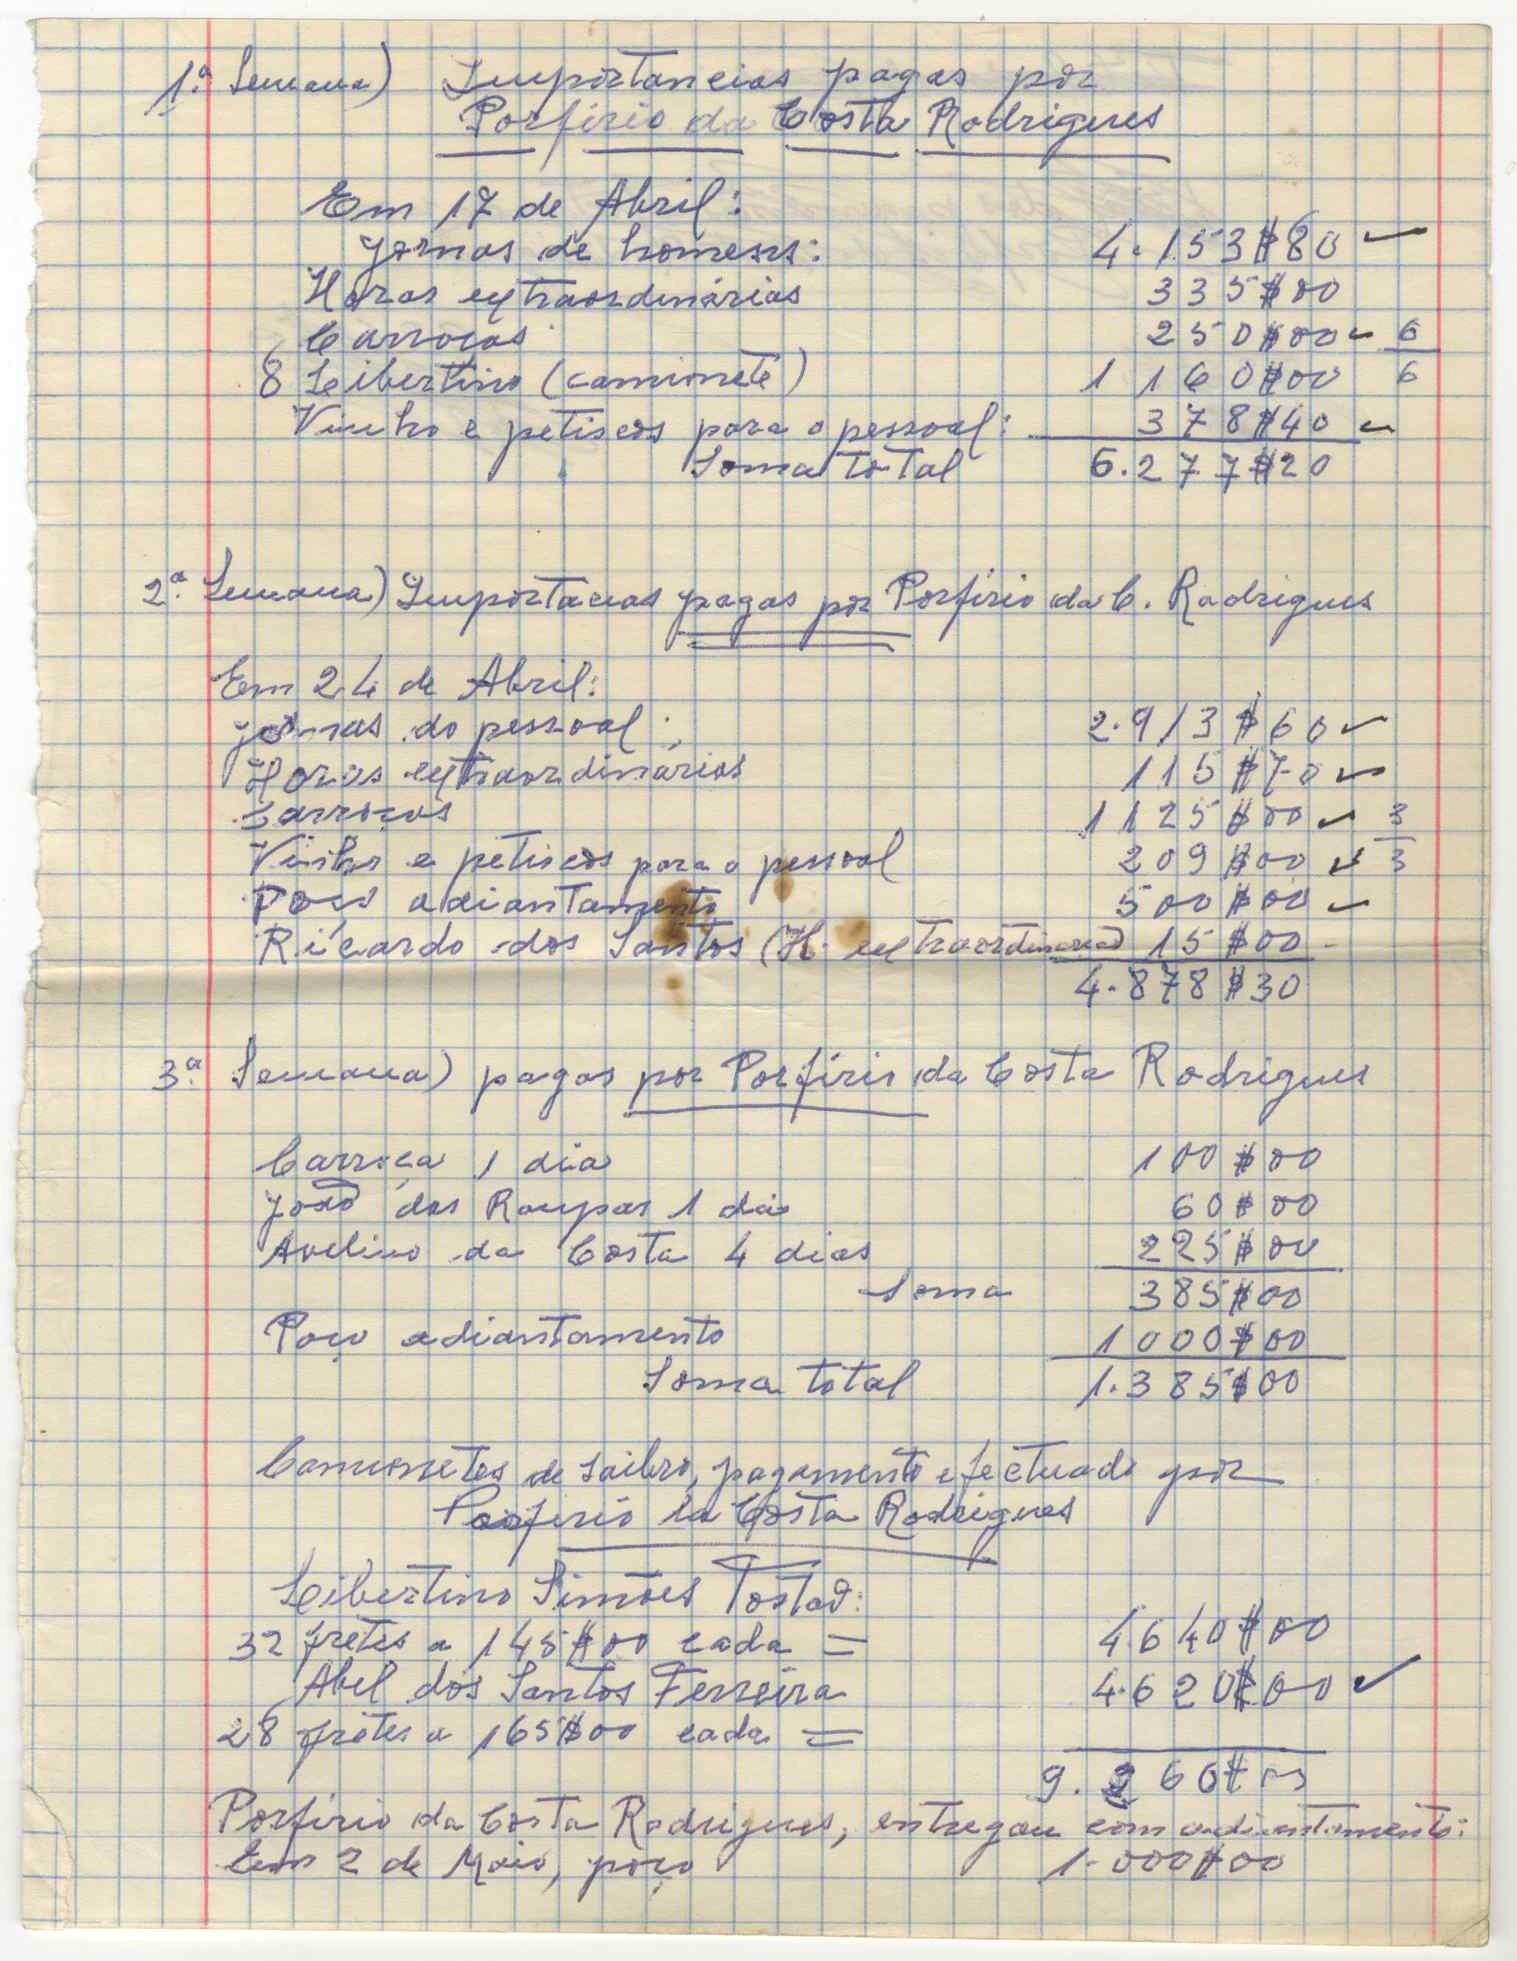 1.ª Semana) Importancias pagas por
Porfirio da Costa Rodrigues
Em 17 de Abril:
Jornas de homens: 4.153$80
Horas extraordinárias 335$00
Carroças 250$00 6
8 Libertino (camionete) 1 160$00 6
Vinho e petiscos para o pessoal: 378$40
Soma total 6.277$20
2.ª Semana) Importacias pagas por Porfirio da C. Rodrigues
Em 24 de Abril:
Jornas do pessoal: 2.913$60
Horas extraordinárias 115$70
Carroças 1125$00 3
Vinho e petiscos para o pessoal 209$00 3
Poço adiantamento 500$00
Ricardo dos Santos (H. extraordinarias) 15$00
4.878$30
3.ª Semana) pagas por Porfirio da Costa Rodrigues
Carroça 1 dia 100$00
João das Roupas 1 dia 60$00
Avelino da Costa 4 dias 225$00
Soma 385$00
Poço adiantamento 1000$00
Soma total 1.385$00
Camionetes de saibro, pagamento efectuado por
Porfirio da Costa Rodrigues
Libertino Simões Tostão:
32 fretes a 145$00 cada = 4.640$00
Abel dos Santos Ferreira 4.620$00
28 fretes a 165$00 cada =
9.260$00
Porfirio da Costa Rodrigues, entregou com adiantamento:
Em 2 de Maio, poço 1.000$00